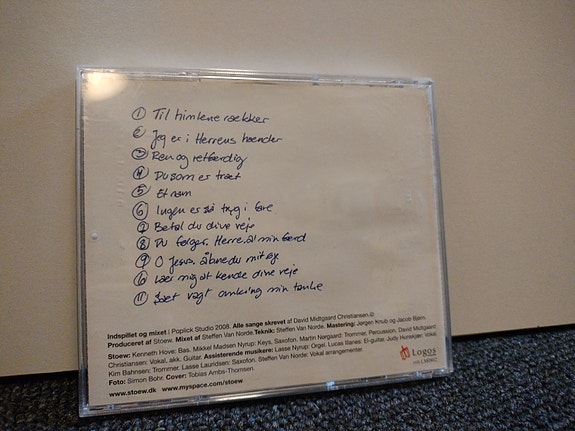 1 Til himlene rækker
2 Jeg er i Herrens hænder
3 Ren og retfærdig
4 Du som er træt
5 Et navn
6 Ingen er så tryg i fare
7 Betal du dine veje
8 Du følger, Herre, al min færd
9 O Jesus, åbne du mit øje
10 Lær mig at kende dine veje
11 Sæt vagt omkring min tanke
Indspillet og mixet i Poplick Studio 2008. Alle sange skrevet af David Midtgaard Christiansen.©
Produceret af Stoew. Mixet af Steffen Van Norde. Teknik: Steffen Van Norde. Mastering: Jørgen Knub og Jacob Bjørn.
Stoew: Kenneth Hove: Bas. Mikkel Madsen Nyrup: Keys, Saxofon. Martin Nørgaard: Trommer, Percussion. David Midtgaard
Christiansen: Vokal, akk. Guitar. Assisterende musikere: Lasse Nyrup: Orgel. Lucas Illanes: El-guitar. Judy Hunskjær: Vokal.
Kim Bahnsen; Trommer. Lasse Lauridsen: Saxofon. Steffen Van Norde: Vokal arrangementer.
Foto: Simon Bohr. Cover: Tobias Ambs-Thomsen.
www.stoew.dk www.myspace.com/stoew
Logos